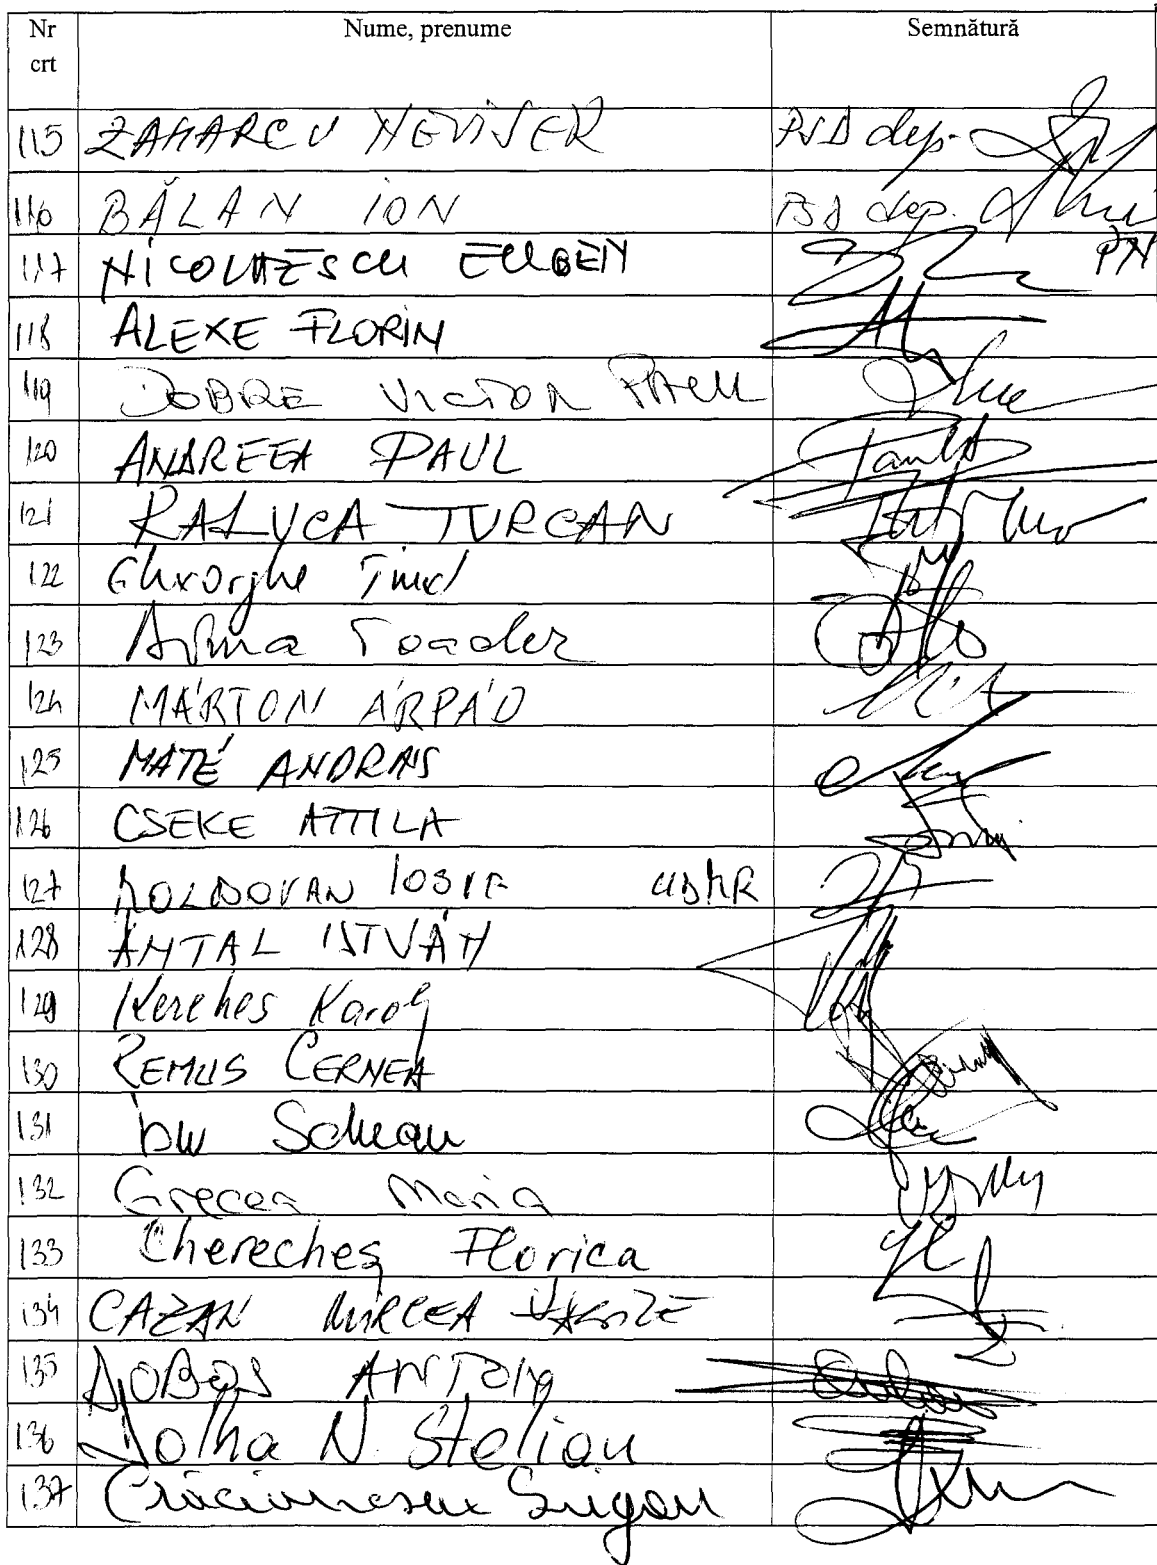 Nr crt Nume, prenume Semnătură
115 ZAHARCU NEVIJER PSD dep.
116 BĂLAN ION PSD dep.
117 NICOLAESCU EUGEN
118 ALEXE FLORIN
119 DOBRE VICTOR PAUL
120 ANDREEA PAUL
121 RALUCA TURCAN
122 Gheorghe
123 Toader
124 MÁRTON ÁRPÁD
125 MATÉ ANDRAS
126 CSEKE ATTILA
127 MOLDOVAN IOSIF UDMR
128 ANTAL ISTVÁN
129 Kereches Karoly
130 REMUS CERNEA
131
132 Grecea Maria
133 Chereches Florica
134 CAZAN MIRCEA VASILE
135 DOBOS ANTON
136 Dolha N. Stelian
137 Crăciunescu